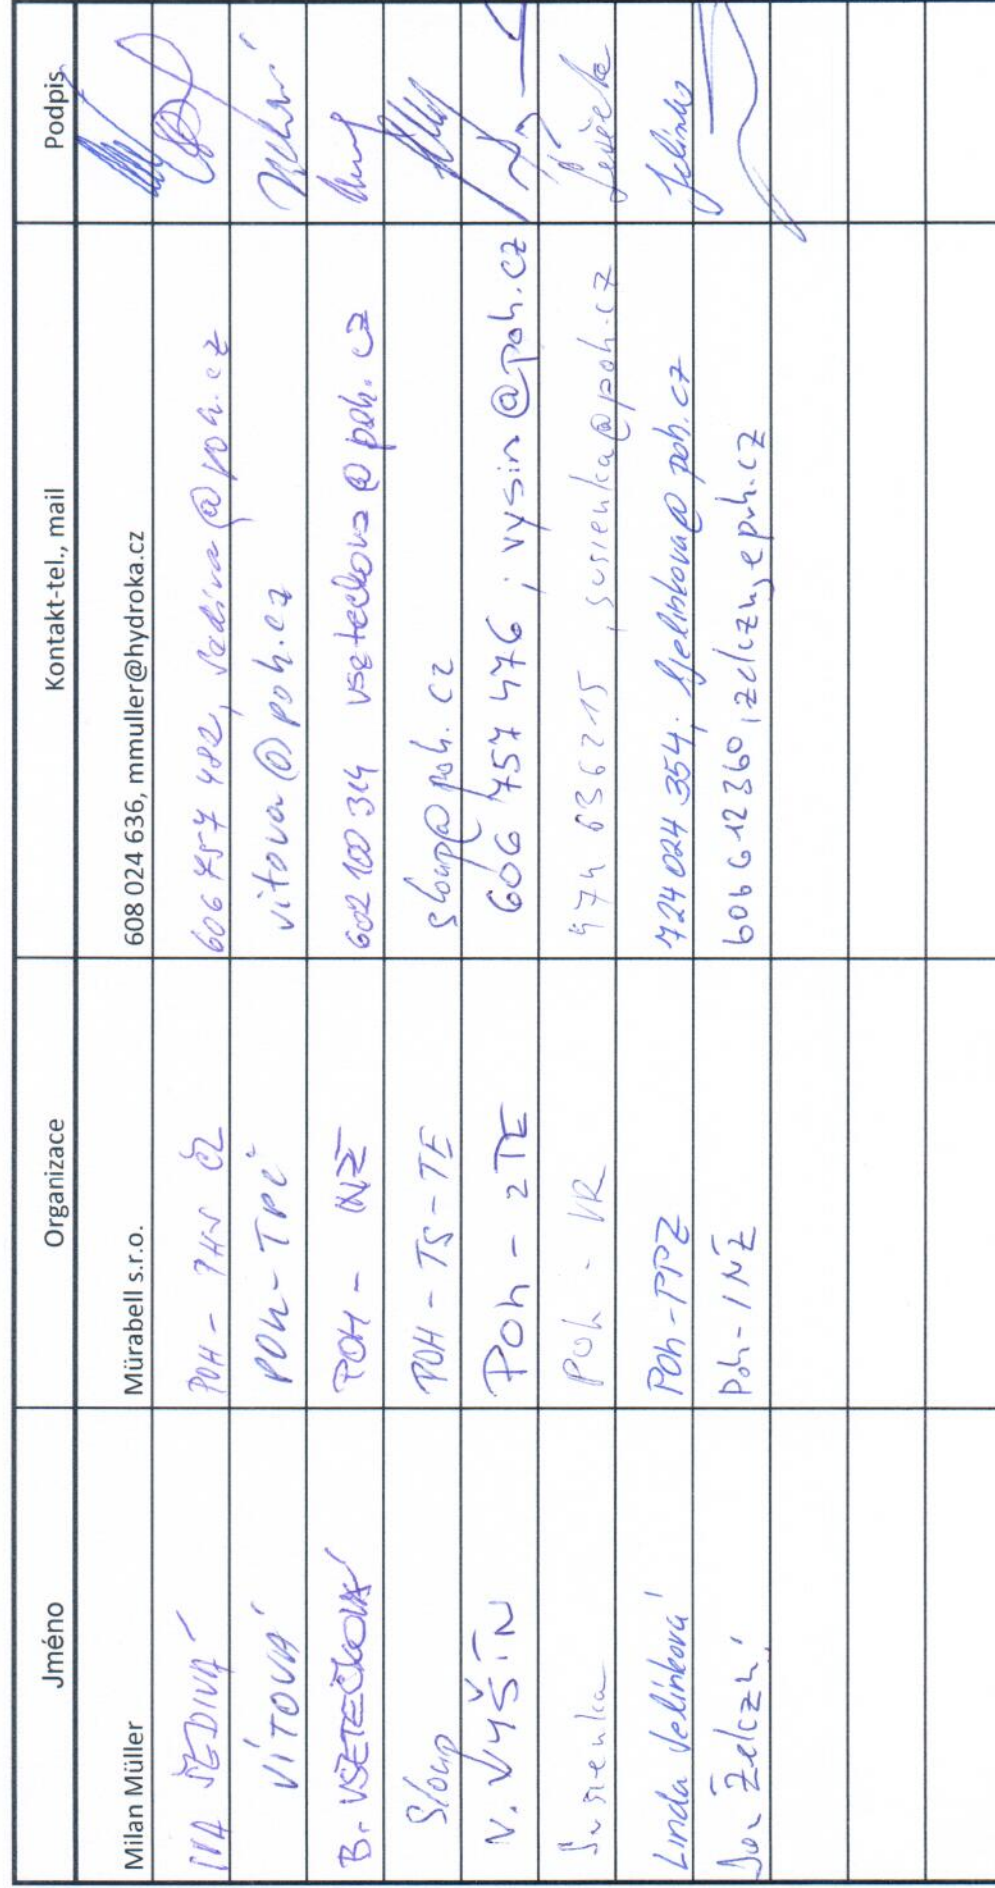 Jméno Organizace Kontakt-tel., mail Podpis
Milan Müller Mürabell s.r.o. 608 024 636, mmuller@hydroka.cz
IVA ŠEDIVÁ POH - ČL 606 757 482, sediva@poh.cz
VÍTOVÁ POh - vitova@poh.cz
B. VŠETEČKOVÁ POH - INŽ 602 100 314 vseteckova@poh.cz
Sloup POH - TS - TE sloup@poh.cz
V. VYŠÍN Poh - 2TE 606 757 476 ; vysin@poh.cz
Susienka Poh - VR 474 636215, susienka@poh.cz
Linda Jelínková POh - PPZ 724 024 354, ljelinkova@poh.cz
Jan Železný Poh - INŽ 606 612 360,